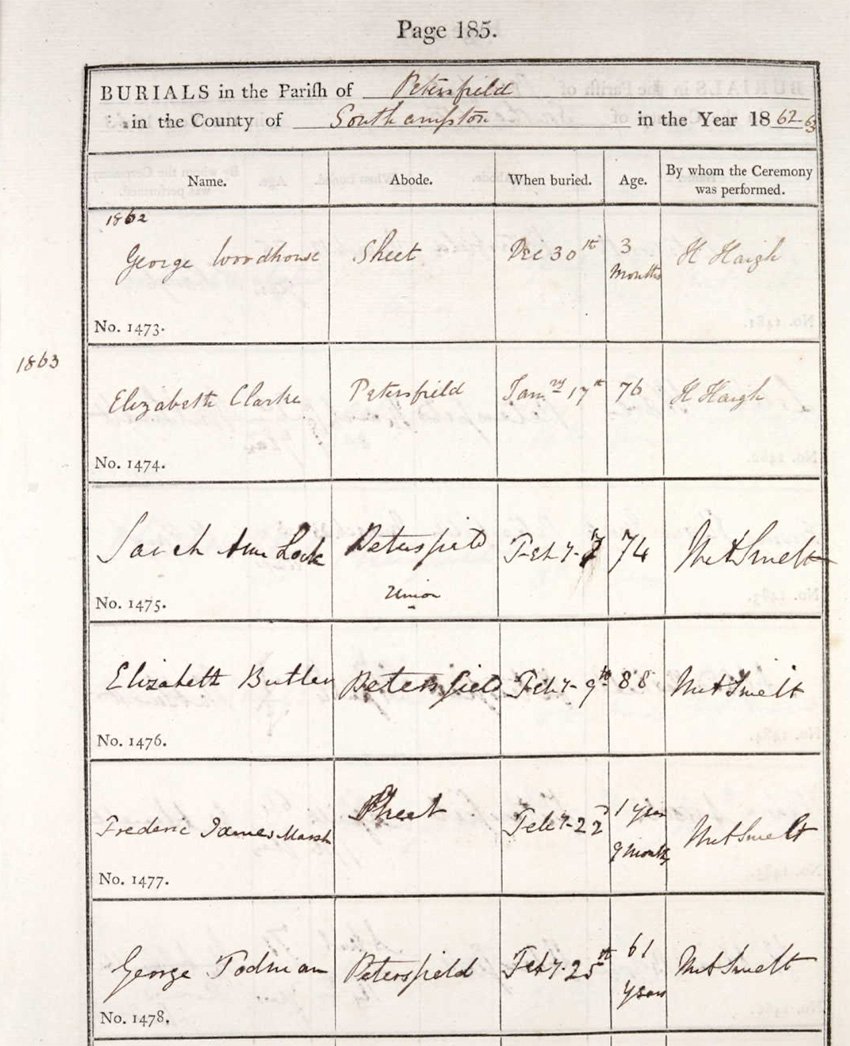 Page 185.
BURIALS in the Parish of Petersfield
in the County of Southampton in the Year 1862-63
Name. Abode. When buried. Age. By whom the Ceremony was performed.
1862
George Woodhouse Sheet Dec 30th 3 Months H Haigh
No. 1473.
1863
Elizabeth Clarke Petersfield Janry 17th 76 H Haigh
No. 1474.
Sarah Ann Lock Petersfield Union Feby. 7 74 Smelt
No. 1475.
Elizabeth Butler Petersfield Feby. 9th 88 Smelt
No. 1476.
Frederic James Marsh Sheet Feby. 22d 1 year 9 months Smelt
No. 1477.
George Todman Petersfield Feby. 25th 61 years Smelt
No. 1478.